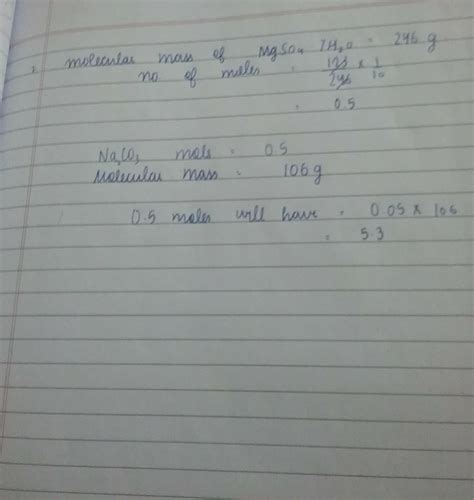 2. molecular mass of MgSO4 7H2O = 246 g
no of moles = 123/246 × 1/10
= 0.5
Na2CO3 mole = 0.5
Molecular mass = 106 g
0.5 moles will have = 0.05 × 106
= 5.3